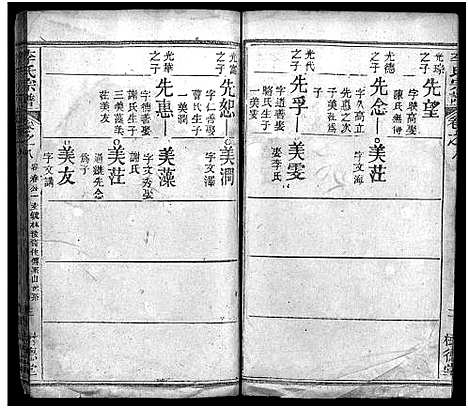 李氏宗譜
卷之八
光瑔
之子
先望
字樂高娶
陳氏無待
光德
之子
先念
美莊
字久高立
先惠之次
子美莊為
子
字文海
光代
之子
先孚
美雯
字道善娶
駱氏生子
一美雯
字文
娶李氏
光富
之子
先恕
美澗
字仁善娶
曹氏生子
一美澗
字文澤
光華
之子
先惠
美藻
字德善娶
謝氏生子
三美藻美
莊美友
字文秀娶
謝氏
美莊
過繼先念
為子
美友
字文講
李氏宗譜
卷之八
樹德堂